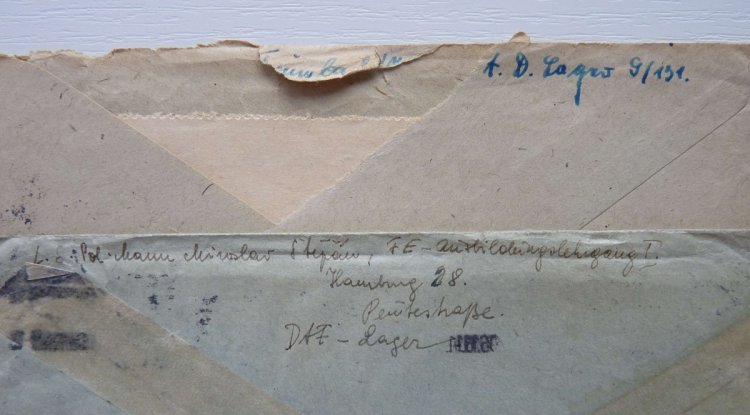 A. D. Lager 9/131.
Pol. Mann Miroslav Štěpán, FE-Ausbildungslehrgang I.
Hamburg 28.
Peutestraße.
DAF-Lager